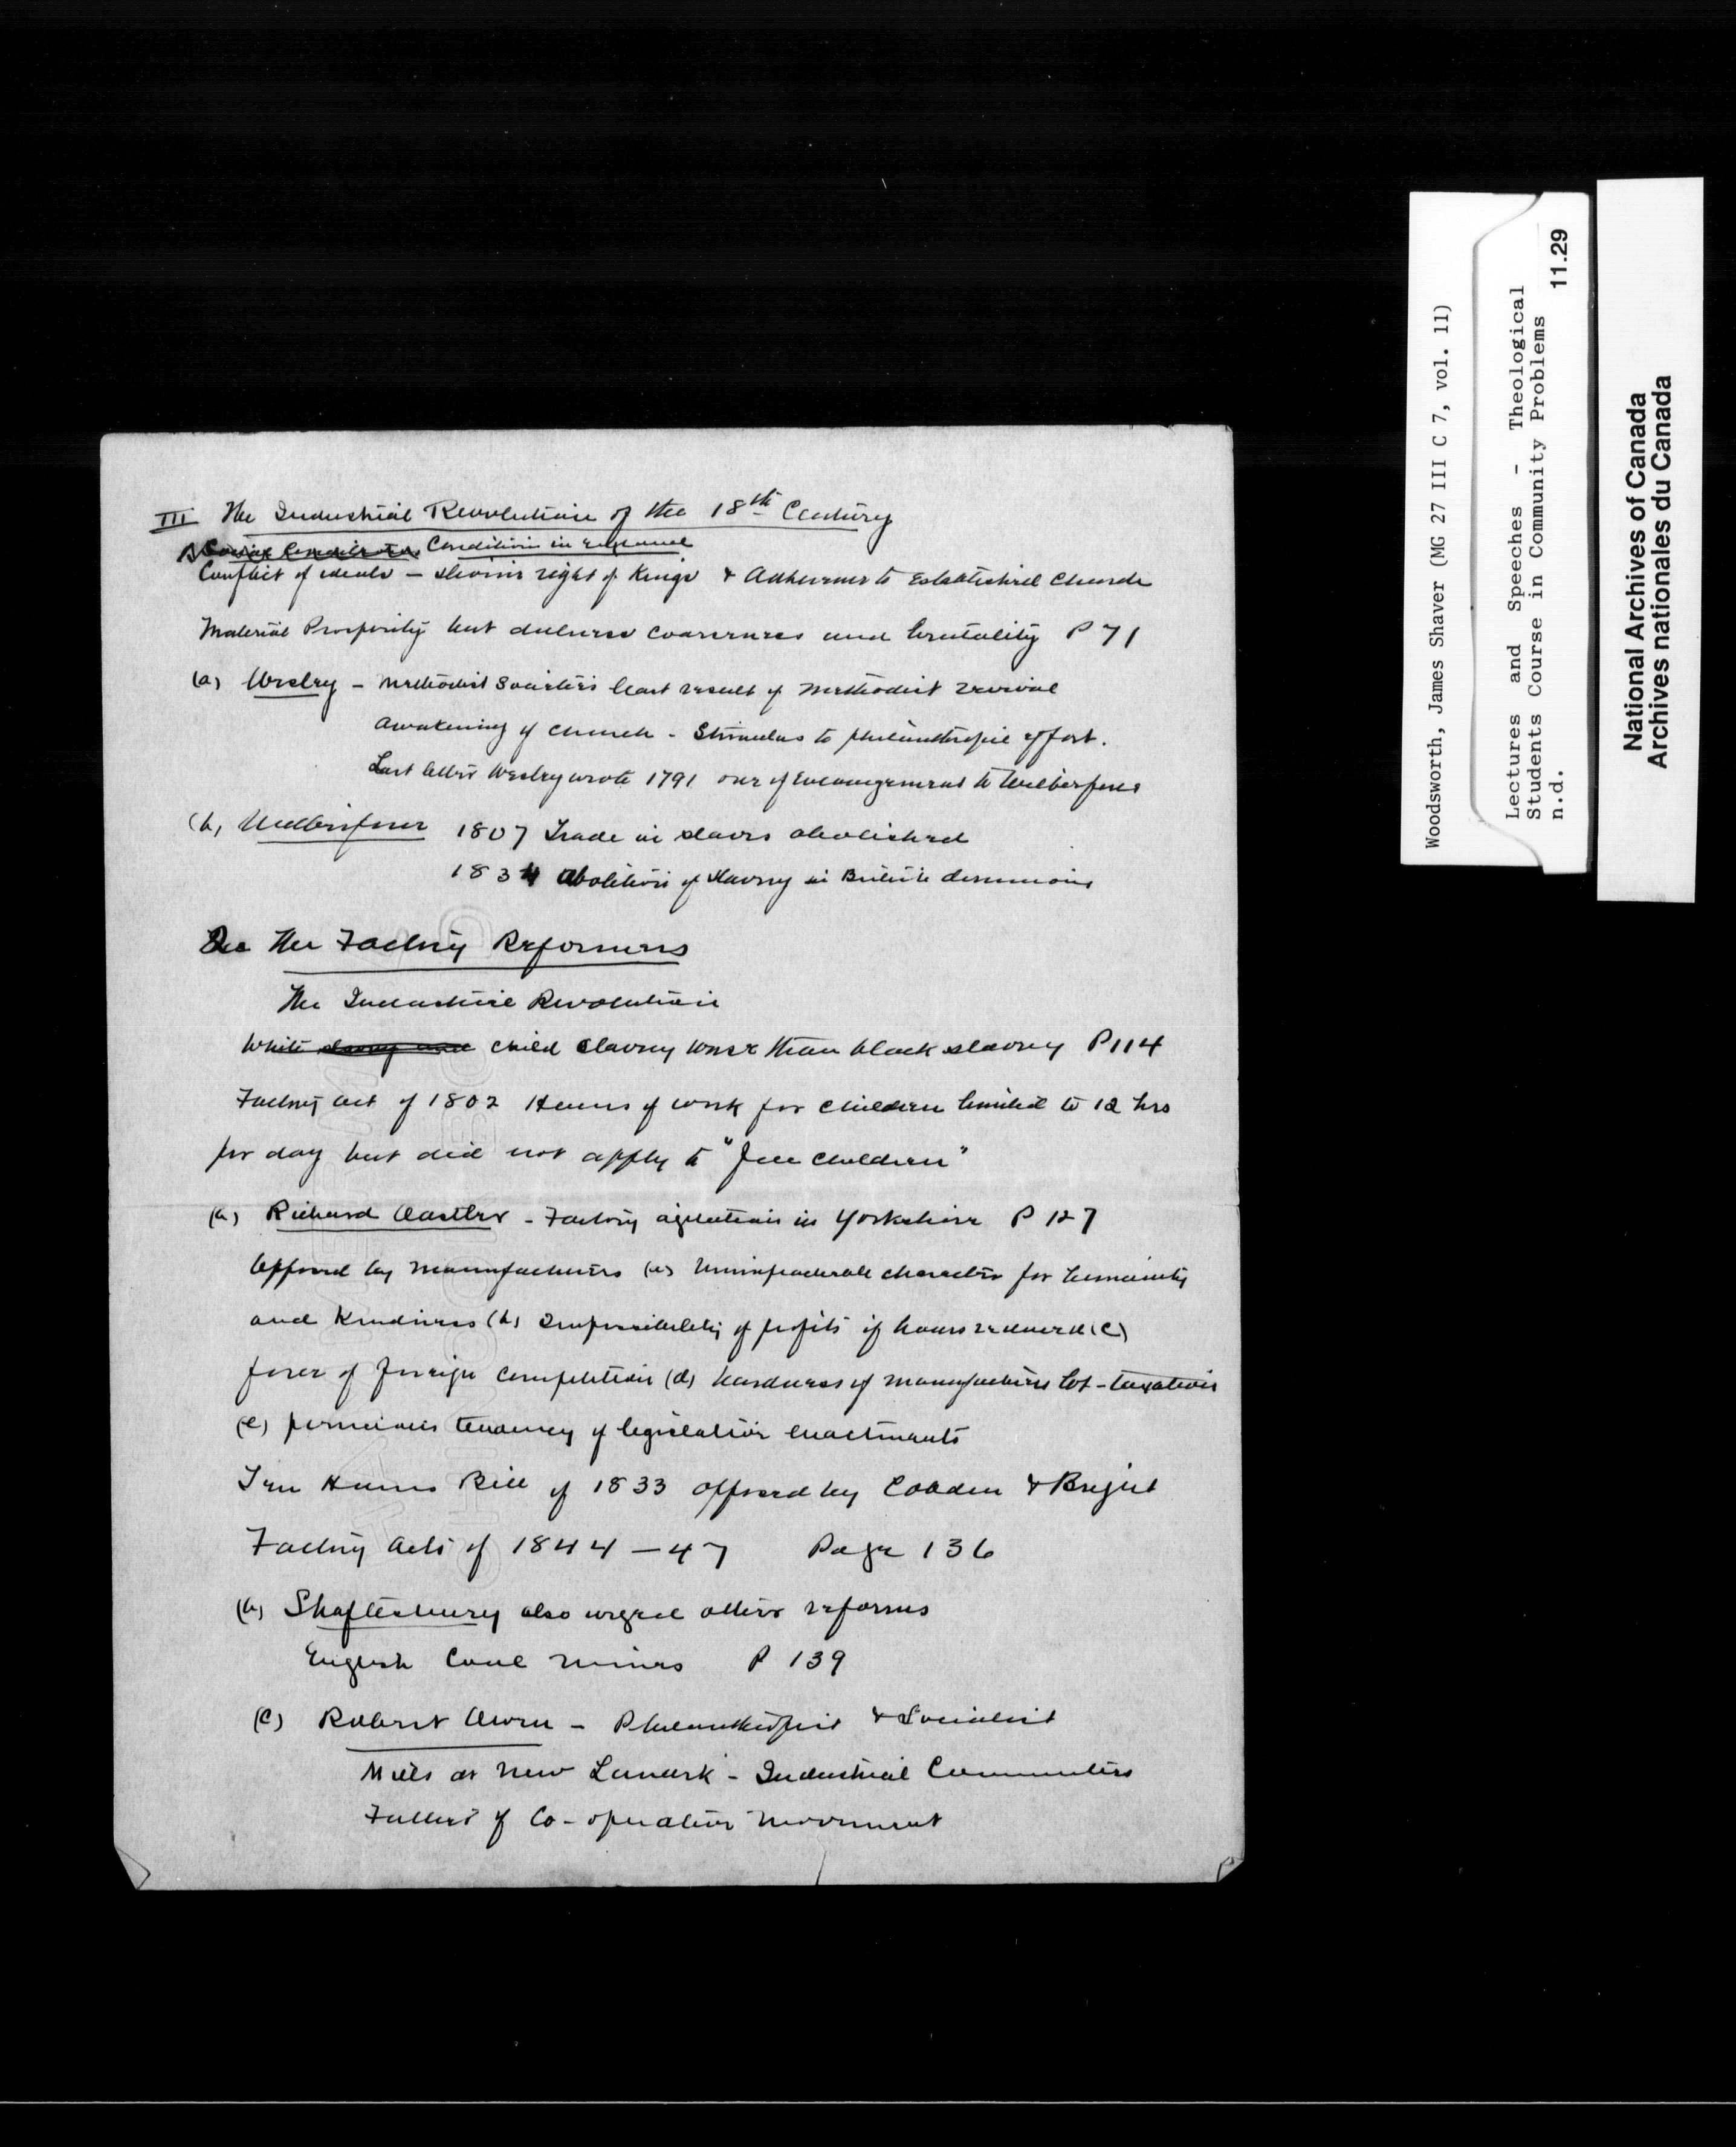 III The Industrial Revolution of the 18th Century
Condition in England
Conflict of ideals – Divine right of Kings & Adherence to Established Church
Material Prosperity but dulness coarseness and brutality P 71
(a) Wesley – Methodist Societies least result of Methodist revival
Awakening of church – Stimulus to philanthropic effort.
Last letter Wesley wrote 1791 one of encouragement to Wilberforce
(b) Wilberforce 1807 Trade in slaves abolished
1834 Abolition of slavery in British dominions
The Factory Reformers
The Industrial Revolution
White slavery and child slavery worse than black slavery P 114
Factory act of 1802 Hours of work for children limited to 12 hrs
per day but did not apply to "free children"
(a) Richard Oastler – Factory agitation in Yorkshire P 127
Opposed by manufacturers (a) Unimpeachable character for humanity
and Kindness (b) Impossibility of profits if hours reduced (c)
force of foreign competition (d) hardness of manufacturers lot – taxation
(e) pernicious tendency of legislative enactments
Ten Hours Bill of 1833 opposed by Cobden & Bright
Factory Acts of 1844 – 47 Page 136
(b) Shaftesbury also urged other reforms
English Coal Mines P 139
(c) Robert Owen – Philanthropist & Socialist
Mills at New Lanark – Industrial Communities
Father of Co-operative Movement
Woodsworth, James Shaver (MG 27 III C 7, vol. 11)
Lectures and Speeches – Theological
Students Course in Community Problems
n.d. 11.29
National Archives of Canada
Archives nationales du Canada